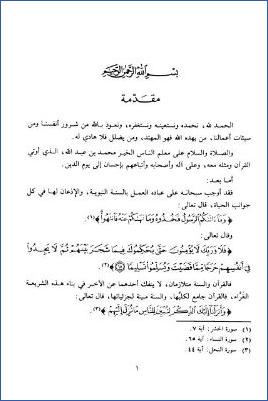 بسم الله الرحمن الرحيم
مقدمة
الحمد لله، نحمده ونستعينه ونستغفره، ونعوذ بالله من شرور أنفسنا ومن
سيئات أعمالنا، من يهده الله فهو المهتد، ومن يضلل فلا هادي له.
والصلاة والسلام على معلم الناس الخير محمد بن عبد الله، الذي أوتي
القرآن ومثله معه، وعلى آله وأصحابه وأتباعهم بإحسان إلى يوم الدين.
أما بعد:
فقد أوجب سبحانه على عباده العمل بالسنة النبوية، والإذعان لها في كل
جوانب الحياة، قال تعالى:
﴿وَمَا آتَاكُمُ الرَّسُولُ فَخُذُوهُ وَمَا نَهَاكُمْ عَنْهُ فَانْتَهُوا﴾(١).
وقال تعالى:
﴿فَلَا وَرَبِّكَ لَا يُؤْمِنُونَ حَتَّى يُحَكِّمُوكَ فِيمَا شَجَرَ بَيْنَهُمْ ثُمَّ لَا يَجِدُوا
فِي أَنْفُسِهِمْ حَرَجًا مِمَّا قَضَيْتَ وَيُسَلِّمُوا تَسْلِيمًا﴾(٢).
فالقرآن والسنة متلازمان، لا ينفك أحدهما عن الآخر في بناء هذه الشريعة
الغراء، فالقرآن جامع لكلياتها، والسنة مبينة لجزئياتها، قال تعالى:
﴿وَأَنْزَلْنَا إِلَيْكَ الذِّكْرَ لِتُبَيِّنَ لِلنَّاسِ مَا نُزِّلَ إِلَيْهِمْ﴾(٣).
(١) سورة الحشر: آية ٧.
(٢) سورة النساء: آية ٦٥.
(٣) سورة النحل: آية ٤٤.
١